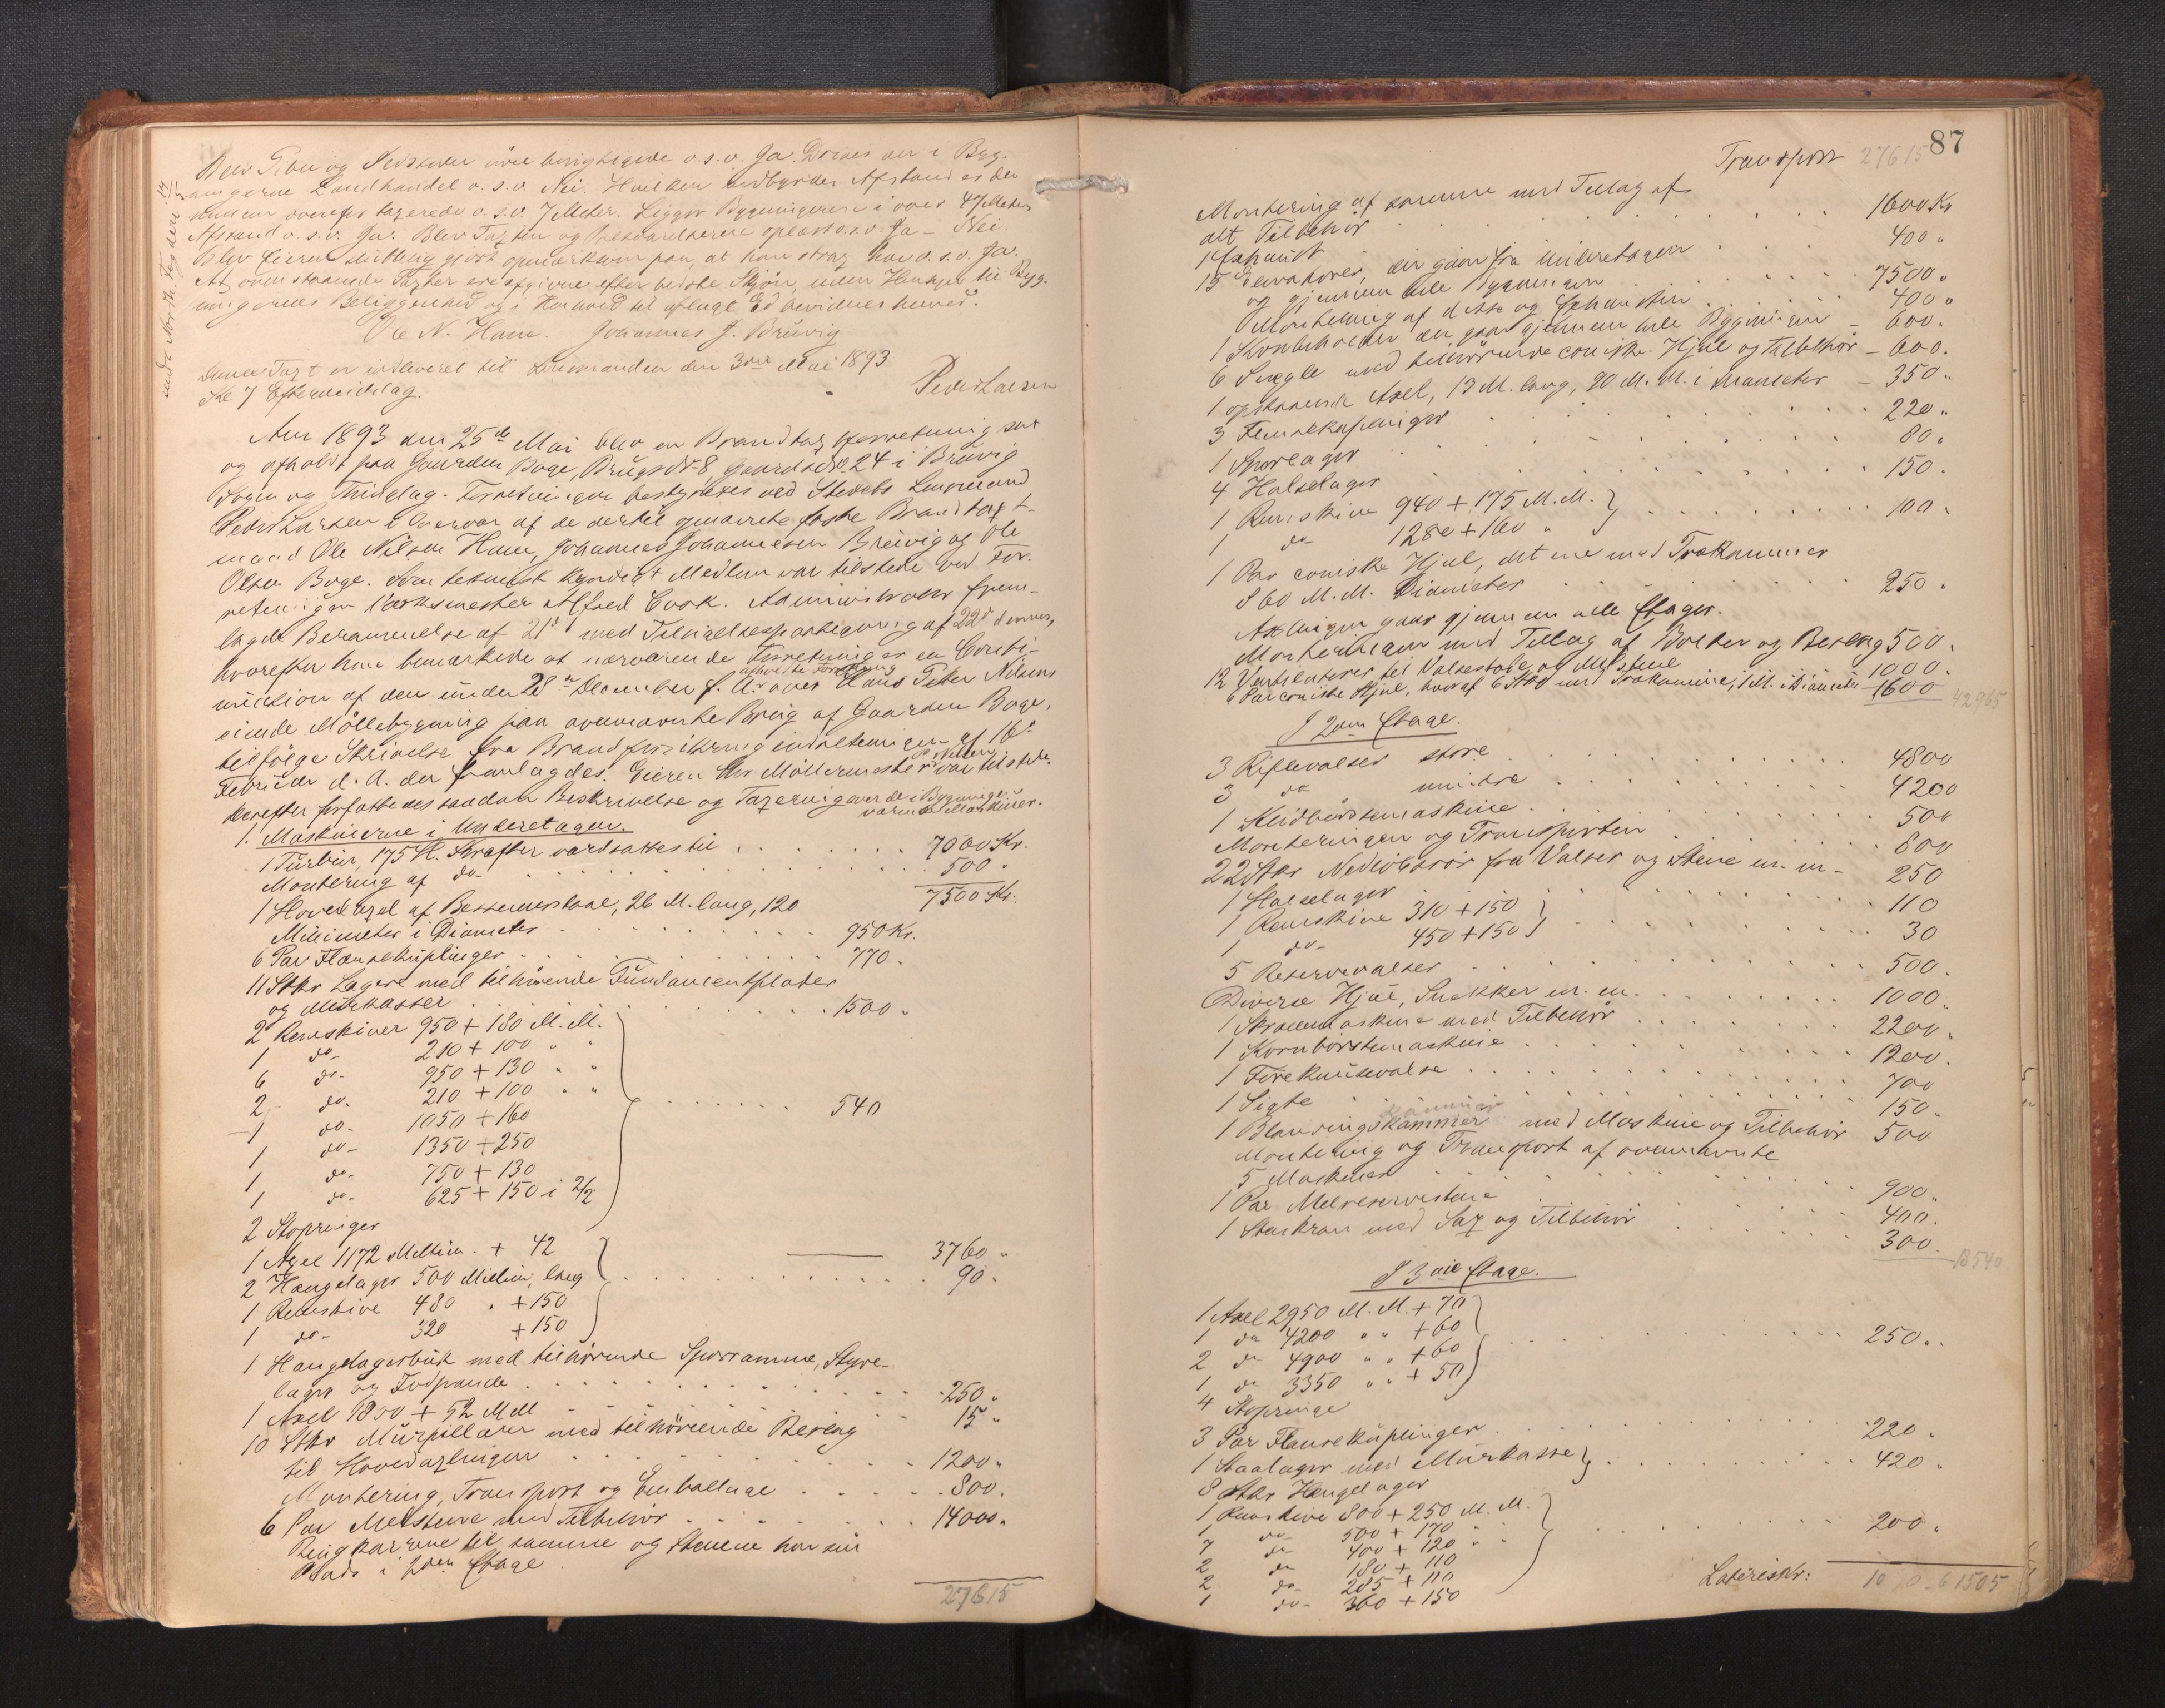 Blev Piber og Ildsteder m.v. besigtigede o.s.v. Ja. Drives der i Byg-
ningerne Landhandel o.s.v. Nei. Hvilken indbyrdes Afstand er der
mellem ovenfor taxerede o.s.v. 7 Meter. Ligger Bygningerne i over 47 Meters
Afstand o.s.v. Ja. Blev Taxten og Besvarelserne oplæst o.s.v. Ja - Nei.
Blev Eieren sluttelig gjort opmærksom paa, at han strax har o.s.v. Ja.
At ovenstaaende Taxter ere afgivne efter bedste Skjøn, uden Hensyn til Byg-
ningernes Beliggenhed og i Henhold til aflagt Ed bevidnes herved.
Ole N. Hane. Johannes J. Bruvig
Denne Taxt er indleveret til Lensmanden den 3die Mai 1893
Kl 7 Eftermiddag.
Peder Larsen
Aar 1893 den 25de Mai blev en Brandtaxtforretning sat
og afholdt paa Gaarden Boge, Brugs No 8, Gaards No 24 i Bruvig
Sogn og Thinglag. Forretningen bestyredes ved Stedets Lensmand
Peder Larsen i Overvær af de dertil opnævnte faste Brandtaxt-
mænd Ole Nilsen Hane, Johannes Johannesen Bruvig og Ole
Olsen Boge. Som teknisk kyndigt Medlem var tilstede ved For-
retningen Værksmester Alfred Cook. Administrator frem-
lagde Berammelse af 21de med Tilsigelsespaategning af 22de dennes,
hvorefter han bemærkede at nærværende Forretning er en Conti-
nuation af den under 28de December f. A. afholdte Forretning over Hans Peter Nilsens
eiende Møllebygning paa ovennævnte Brug af Gaarden Boge,
tilfølge Skrivelse fra Brandforsikringsindretningen af 16de
Februar d. A. der fremlagdes. Eieren Hr Møllermester P. Nilsen var tilstede.
Derefter forfattedes saadan Beskrivelse og Taxering over de i Bygningen
værende Maskiner.
1. Maskinerne i Underetagen.
1 Turbin, 175 H. Kræfter værdsattes til . . . 7000 Kr.
Montering af do . . . 500 "
7500 Kr.
1 Hovedaxel af Bessemerstaal, 26 M. lang, 120
Millimeter i Diameter . . . 950 Kr.
6 Par Flanschekuplinger . . . 770 "
11 Stkr Lagere med tilhørende Fundamentplader
og Murkasser . . . 1500 "
2 Remskiver 950 + 180 M.M.
1 do- 210 + 100 " "
6 do- 950 + 130 " "
2 do. 210 + 100 " "
1 do- 1050 + 160
1 do- 1350 + 250 . . . 540
1 do- 750 + 130
1 do- 625 + 150 i 2/2
2 Stopringer
3760 "
1 Axel 1172 Millim. + 42
2 Hængelager 500 Millim. lang . . . 90 "
1 Remskive 480 " + 150
1 do- 320 + 150
1 Hængelagerbuk med tilhørende Sporramme, Styre-
lager og Fodpande . . . 250 "
1 Axel 1850 + 52 M M . . . 15 "
10 Stkr Murpillarer med tilhørende Beslag
til Hovedaxlingen . . . 1200 "
Montering, Transport og Emballage . . . 800 "
6 Par Melstene med Tilbehør . . . 14000 "
Ringkarrene til samme og Stenene har sin
Plads i 2den Etage.
27615
87
Transport 27615
Montering af samme med Tillag af
alt Tilbehør . . . 1600 Kr
1 Exhaust . . . 400 "
15 Elevatorer, der gaar fra Underetagen
og gjennem hele Bygningen . . . 7500 "
Montering af disse og Exhausten . . . 400 "
1 Kornbeholder der gaar gjennem hele Bygningen - 600 "
6 Snegle med tilhørende coniske Hjul og Tilbehør - 600 "
1 opstaaende Axel, 13 M. lang, 90 M.M. i Diameter - 350 "
3 Flensekuplinger . . . 220 "
1 Sporlager . . . 80 "
4 Halslager . . . 150 "
1 Remskive 940 + 175 M.M.
1 do- 1280 + 160 " . . . 100 "
1 Par coniske Hjul, det ene med Trækammer
860 M.M. Diameter . . . 250 "
Axlingen gaar gjennem alle Etager.
Monteringen med Tillag af Bolter og Beslag 500 "
12 Ventilatorer til Valsestole og Melstene 1000 "
6 Par coniske Hjul, hvoraf 6 Stkr med Trækamme, 1 M. i Diameter 1600 42965
I 2den Etage.
3 Riflevalser store . . . 4800
3 do " mindre . . . 4200
1 Klidbørstemaskine . . . 500
Monteringen og Transporten . . . 800
22 Stkr Nedløbsrør fra Valser og Stene m. m - 250
1 Halslager
1 Remskive 310 + 150 . . . 110
1 do- 450 + 150 . . . 30
5 Reservevalser . . . 500 "
Diverse Hjul, Snekker m. m. . . . 1000 "
1 Skrællemaskine med Tilbehør . . . 2200 "
1 Kornbørstemaskine . . . 1200 "
1 Foreknusevalse . . . 700
1 Sigte . . . 150 "
1 Blandingskammer med Maskine og Tilbehør 500
Montering og Transport af ovennævnte
5 Maskiner . . . 900 "
1 Par Melreservestene . . . 400 "
1 Stenkran med Sax og Tilbehør . . . 300 " 18540
I 3die Etage.
1 Axel 2950 M.M. + 70
1 do 4200 " " + 60
2 do 4900 " " + 60 . . . 250 "
1 do 3350 " " + 50
4 Stopringe
3 Par Flansekuplinger . . . 220 "
1 Staalager med Murkasse . . . 420 "
8 Stkr Hængelager
1 Remskive 800 + 250 M.M.
1 do- 500 + 170 " "
7 do 400 + 120 " " . . . 200 "
2 do 180 + 110
2 do- 285 + 110
1 do- 360 + 150
Lateris Kr: 61505